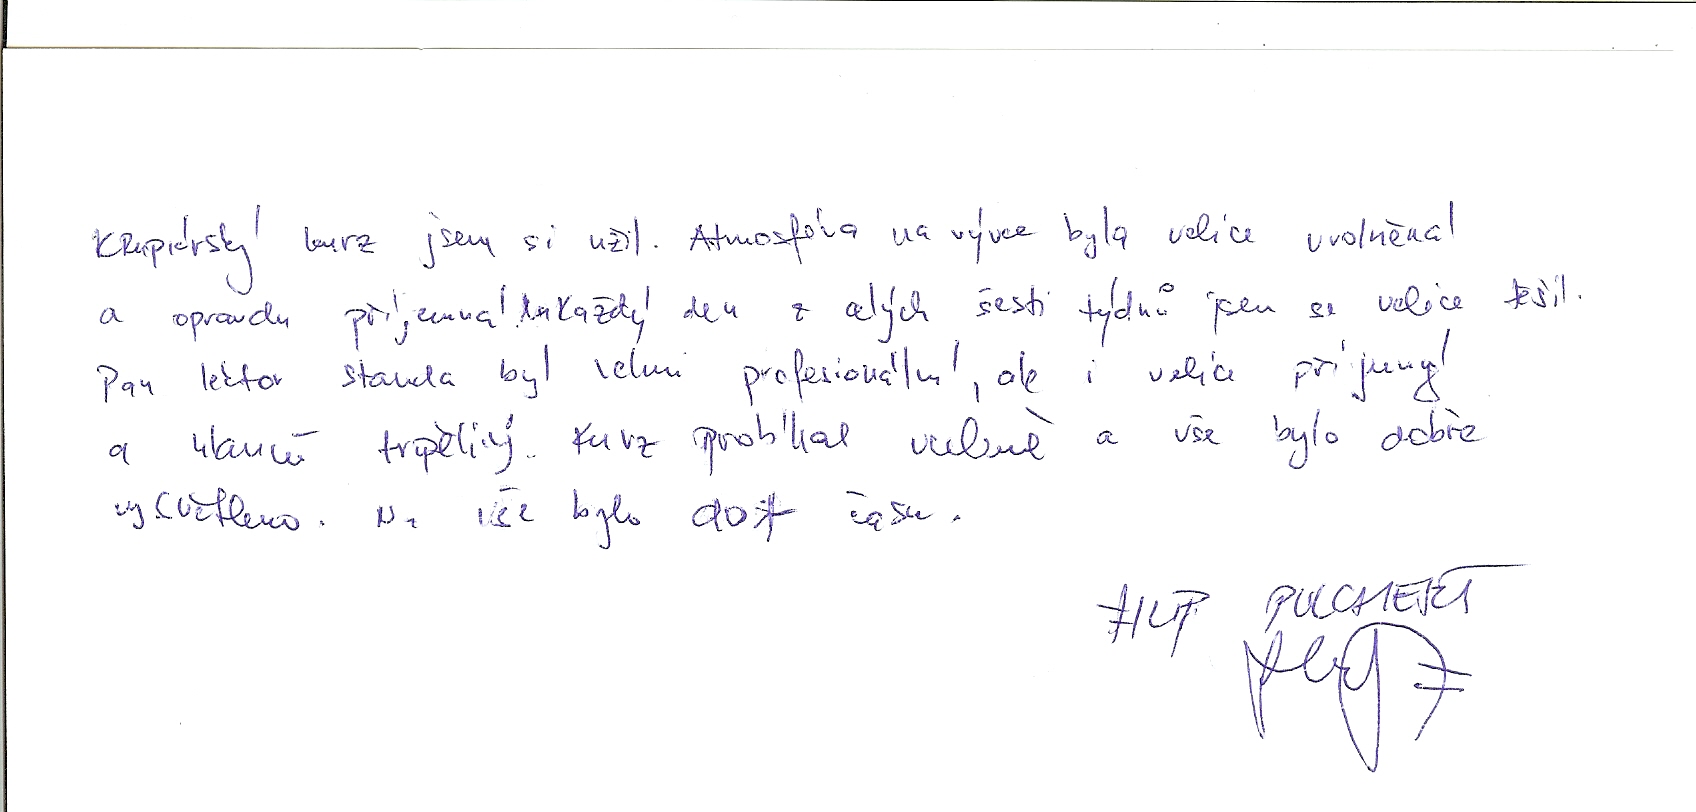 Krupiérský kurz jsem si užil. Atmosféra na výuce byla velice uvolněná
a opravdu příjemná. Na každý den z celých šesti týdnů jsem se velice těšil.
Pan lektor Standa byl velmi profesionální, ale i velice příjemný
a hlavně trpělivý. Kurz probíhal a vše bylo dobře
vysvětleno. Na vše bylo dost času.
FILIP